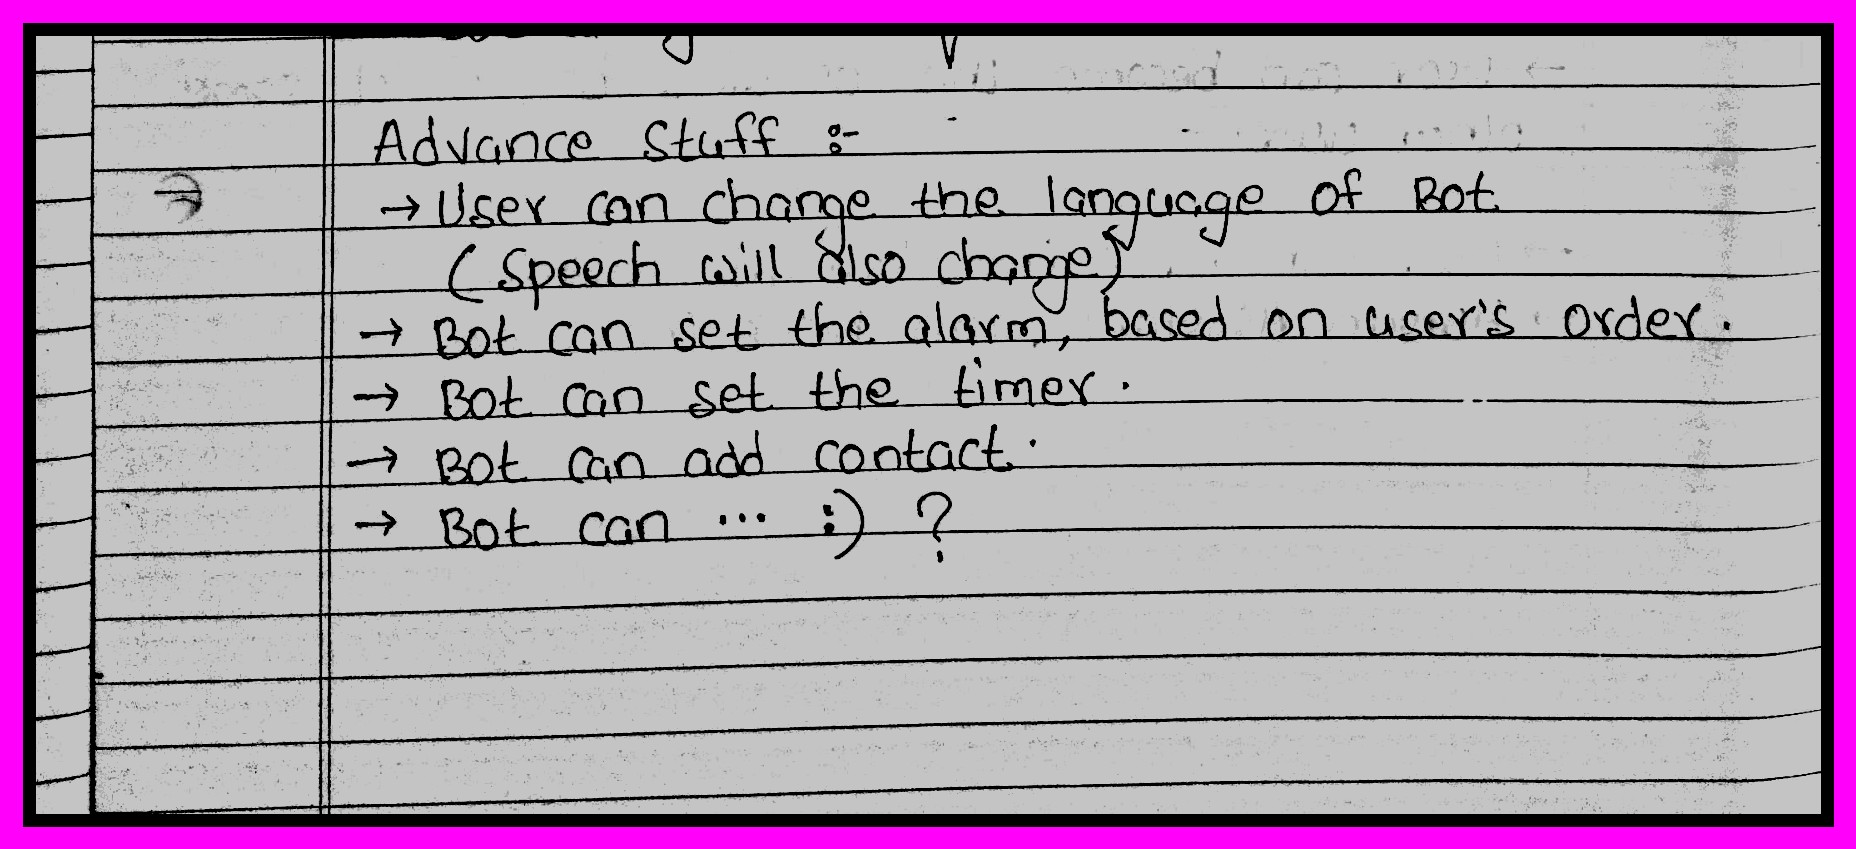 Advance Stuff :-
→ User can change the language of Bot
(Speech will also change)
→ Bot can set the alarm, based on user's order.
→ Bot can set the timer.
→ Bot can add contact.
→ Bot can ... :) ?